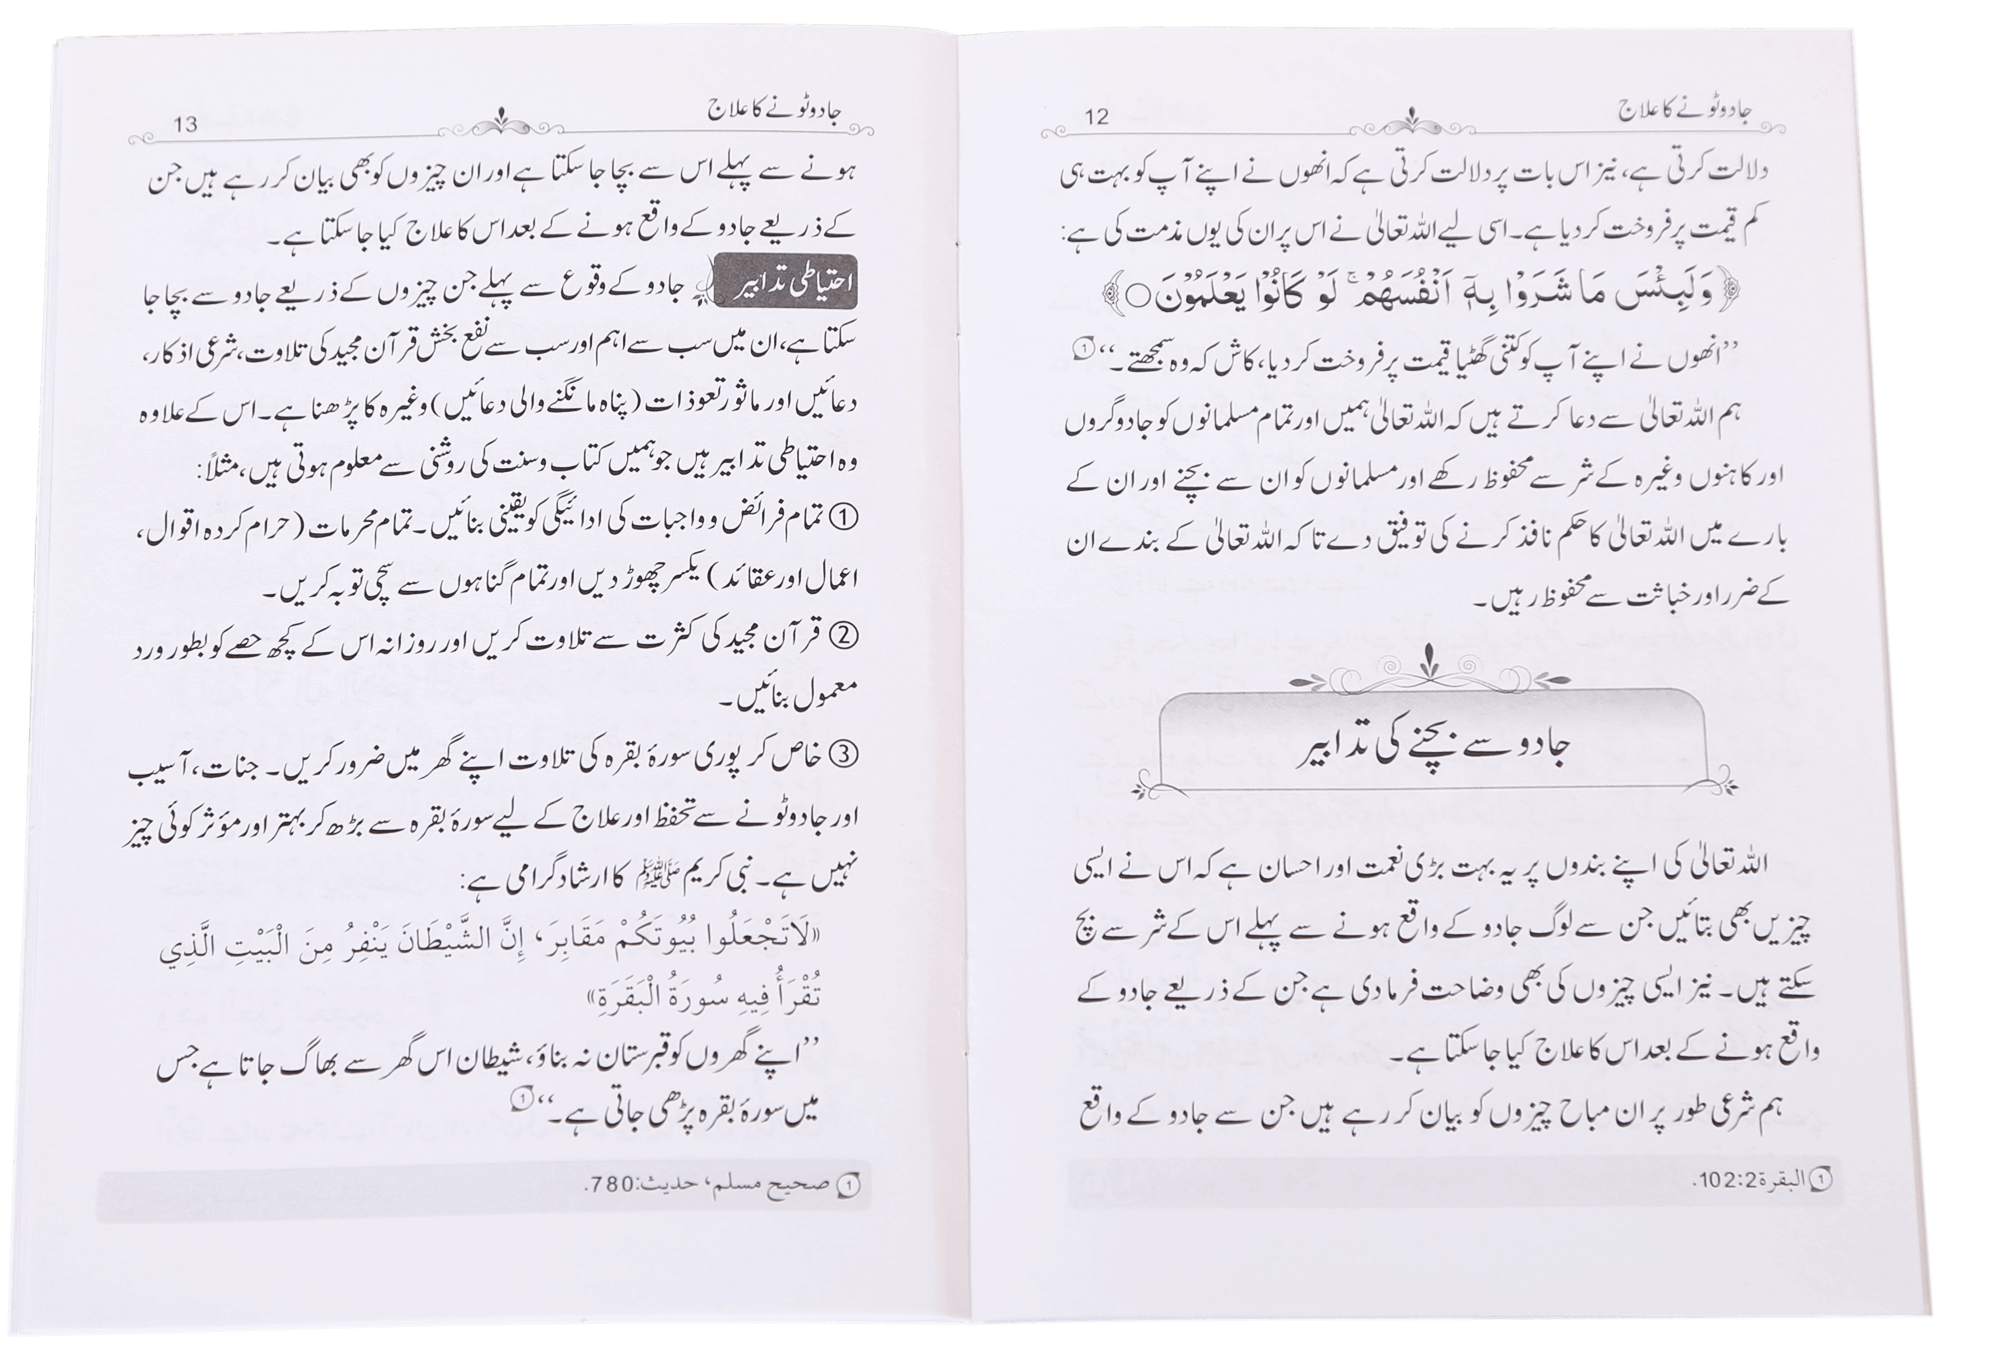 جادو ٹونے کا علاج 12
دلالت کرتی ہے، نیز اس بات پر دلالت کرتی ہے کہ انھوں نے اپنے آپ کو بہت ہی
کم قیمت پر فروخت کر دیا ہے۔ اسی لیے اللہ تعالیٰ نے اس پر ان کی یوں مذمت کی ہے:
﴿وَلَبِئْسَ مَا شَرَوْا بِهٖٓ اَنْفُسَهُمْ ۚ لَوْ كَانُوْا يَعْلَمُوْنَ○﴾
’’انھوں نے اپنے آپ کو کتنی گھٹیا قیمت پر فروخت کر دیا، کاش کہ وہ سمجھتے۔‘‘①
ہم اللہ تعالیٰ سے دعا کرتے ہیں کہ اللہ تعالیٰ ہمیں اور تمام مسلمانوں کو جادوگروں
اور کاہنوں وغیرہ کے شر سے محفوظ رکھے اور مسلمانوں کو ان سے بچنے اور ان کے
بارے میں اللہ تعالیٰ کا حکم نافذ کرنے کی توفیق دے تا کہ اللہ تعالیٰ کے بندے ان
کے ضرر اور خباثت سے محفوظ رہیں۔
جادو سے بچنے کی تدابیر
اللہ تعالیٰ کی اپنے بندوں پر یہ بہت بڑی نعمت اور احسان ہے کہ اس نے ایسی
چیزیں بھی بتائیں جن سے لوگ جادو کے واقع ہونے سے پہلے اس کے شر سے بچ
سکتے ہیں۔ نیز ایسی چیزوں کی بھی وضاحت فرما دی ہے جن کے ذریعے جادو کے
واقع ہونے کے بعد اس کا علاج کیا جا سکتا ہے۔
ہم شرعی طور پر ان مباح چیزوں کو بیان کر رہے ہیں جن سے جادو کے واقع
① البقرة 102:2.
جادو ٹونے کا علاج 13
ہونے سے پہلے اس سے بچا جا سکتا ہے اور ان چیزوں کو بھی بیان کر رہے ہیں جن
کے ذریعے جادو کے واقع ہونے کے بعد اس کا علاج کیا جا سکتا ہے۔
احتیاطی تدابیر جادو کے وقوع سے پہلے جن چیزوں کے ذریعے جادو سے بچا جا
سکتا ہے، ان میں سب سے اہم اور سب سے نفع بخش قرآن مجید کی تلاوت، شرعی اذکار،
دعائیں اور ماثور تعوذات (پناہ مانگنے والی دعائیں) وغیرہ کا پڑھنا ہے۔ اس کے علاوہ
وہ احتیاطی تدابیر ہیں جو ہمیں کتاب و سنت کی روشنی سے معلوم ہوتی ہیں، مثلاً:
① تمام فرائض و واجبات کی ادائیگی کو یقینی بنائیں۔ تمام محرمات (حرام کردہ اقوال،
اعمال اور عقائد) یکسر چھوڑ دیں اور تمام گناہوں سے سچی توبہ کریں۔
② قرآن مجید کی کثرت سے تلاوت کریں اور روزانہ اس کے کچھ حصے کو بطور ورد
معمول بنائیں۔
③ خاص کر پوری سورۂ بقرہ کی تلاوت اپنے گھر میں ضرور کریں۔ جنات، آسیب
اور جادو ٹونے سے تحفظ اور علاج کے لیے سورۂ بقرہ سے بڑھ کر بہتر اور مؤثر کوئی چیز
نہیں ہے۔ نبی کریم ﷺ کا ارشاد گرامی ہے:
«لَاتَجْعَلُوا بُيُوتَكُمْ مَقَابِرَ، إِنَّ الشَّيْطَانَ يَنْفِرُ مِنَ الْبَيْتِ الَّذِي
تُقْرَأُ فِيهِ سُورَةُ الْبَقَرَةِ»
’’اپنے گھروں کو قبرستان نہ بناؤ، شیطان اس گھر سے بھاگ جاتا ہے جس
میں سورۂ بقرہ پڑھی جاتی ہے۔‘‘①
① صحيح مسلم، حديث:780.